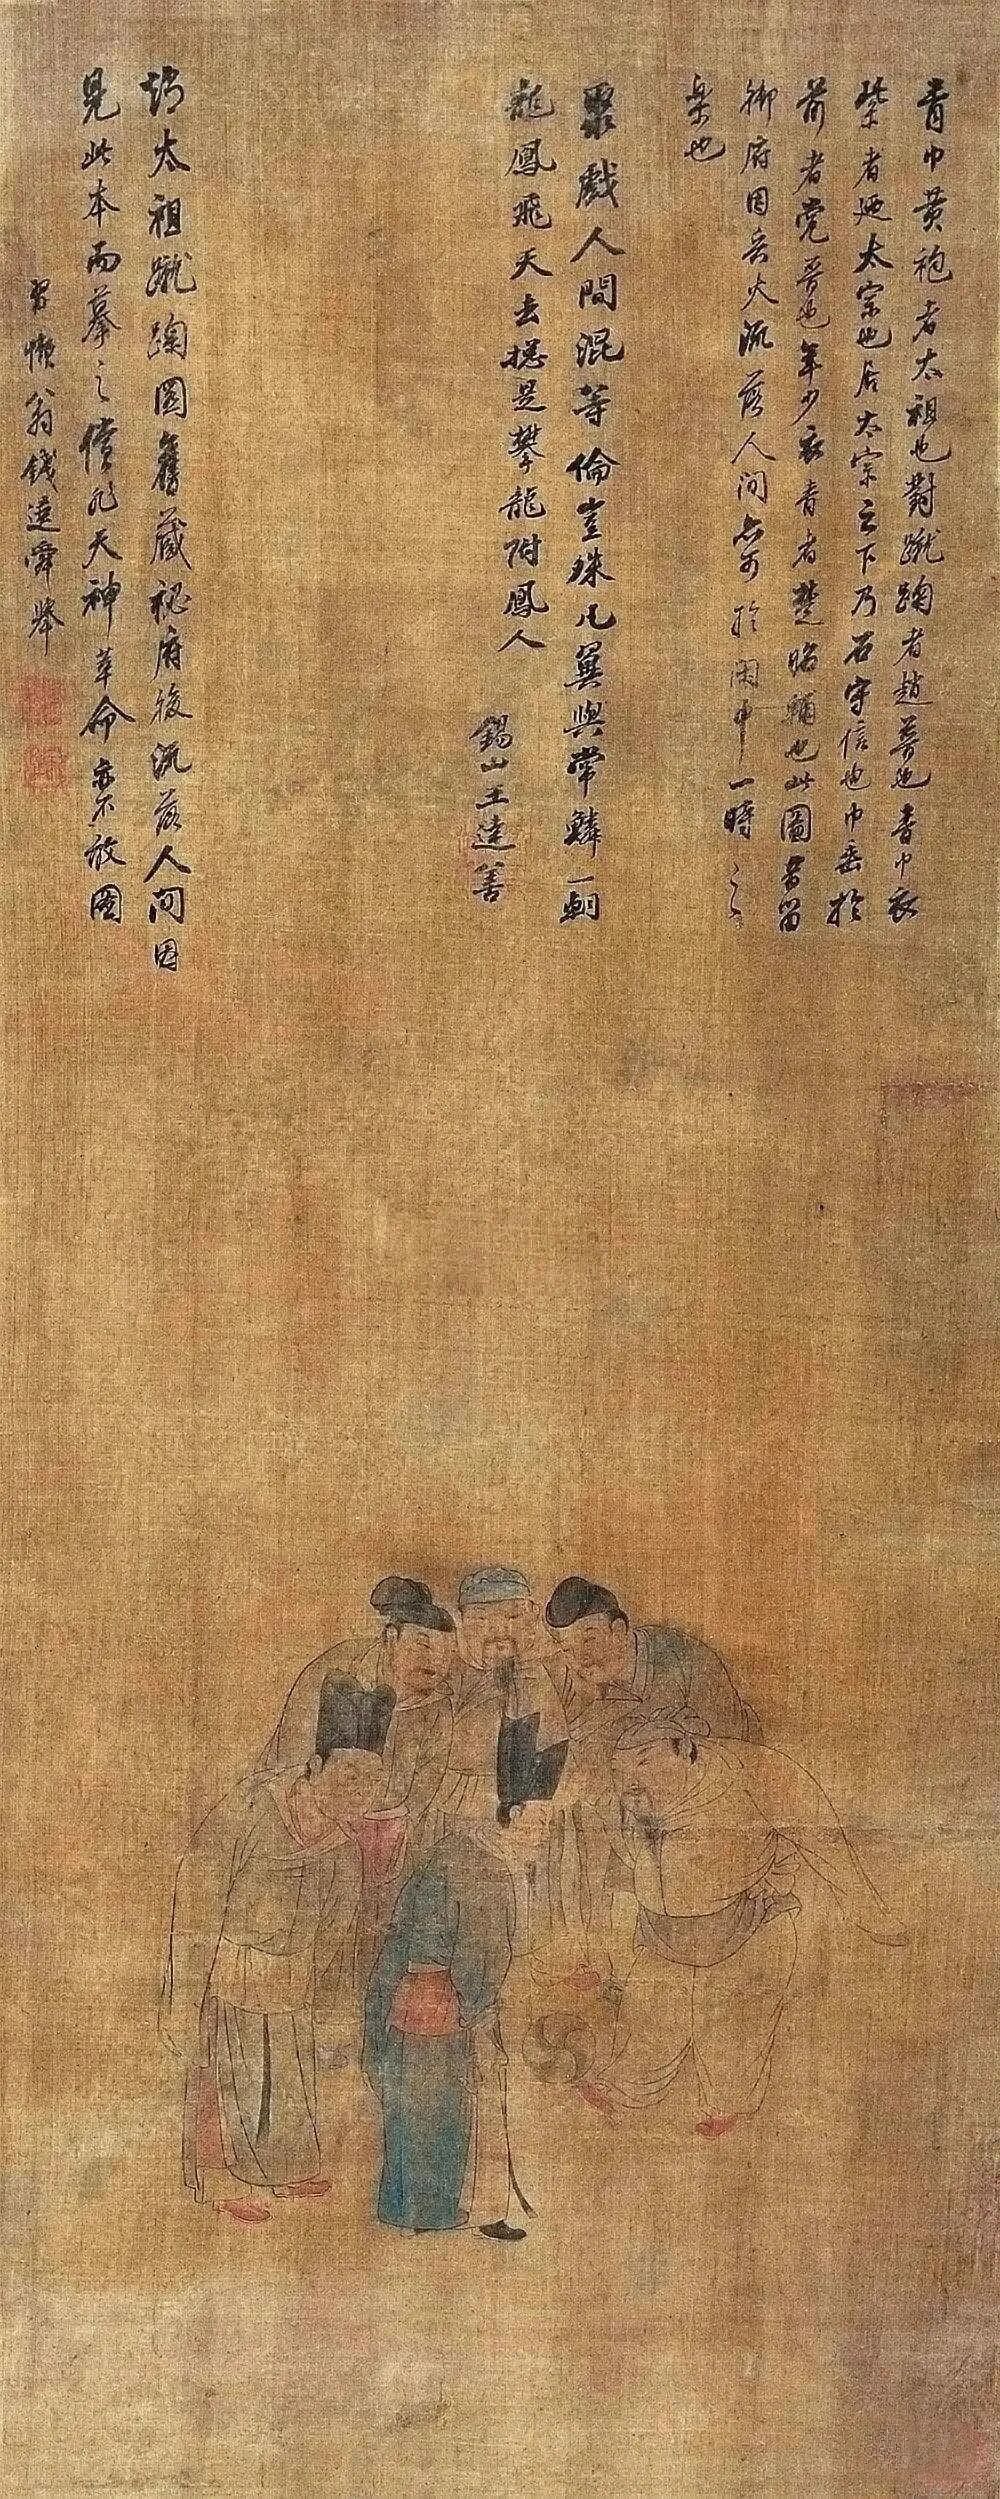 青巾黄袍者太祖也對蹴踘者趙普也青巾衣
紫者廼太宗也居太宗之下乃石守信也巾垂於
前者党晋也年少衣青者楚昭輔也此圖舊留
御府因兵火流落人間亦可於閑中一時之
樂也
聚戲人間混等倫豈殊凡翼與常鱗一朝
龍鳳飛天去總是攀龍附鳳人
錫山王達善
太祖蹴踘圖舊藏秘府後流落人間因
見此本而摹之儻非天神革命亦不敢圖
習懶翁錢選舜舉